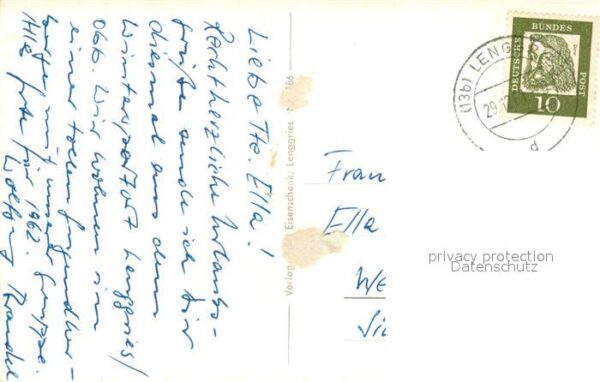 Liebe Tte. Ella!
Recht herzliche Urlaubs-
grüße sende ich Dir
diesmal aus dem
Wintersportort Lenggries/
Obb. Wir wohnen in
einer tollen Jugendher-
mit unserer Gruppe.
Alles Gute für 1962.
Wolfgang
Verlag Eisenschenk, Lenggries Nr. 166
(13b) LENGG
29.
d
DEUTSCHE
BUNDES
POST
10
Frau
Ella
We
privacy protection
Datenschutz